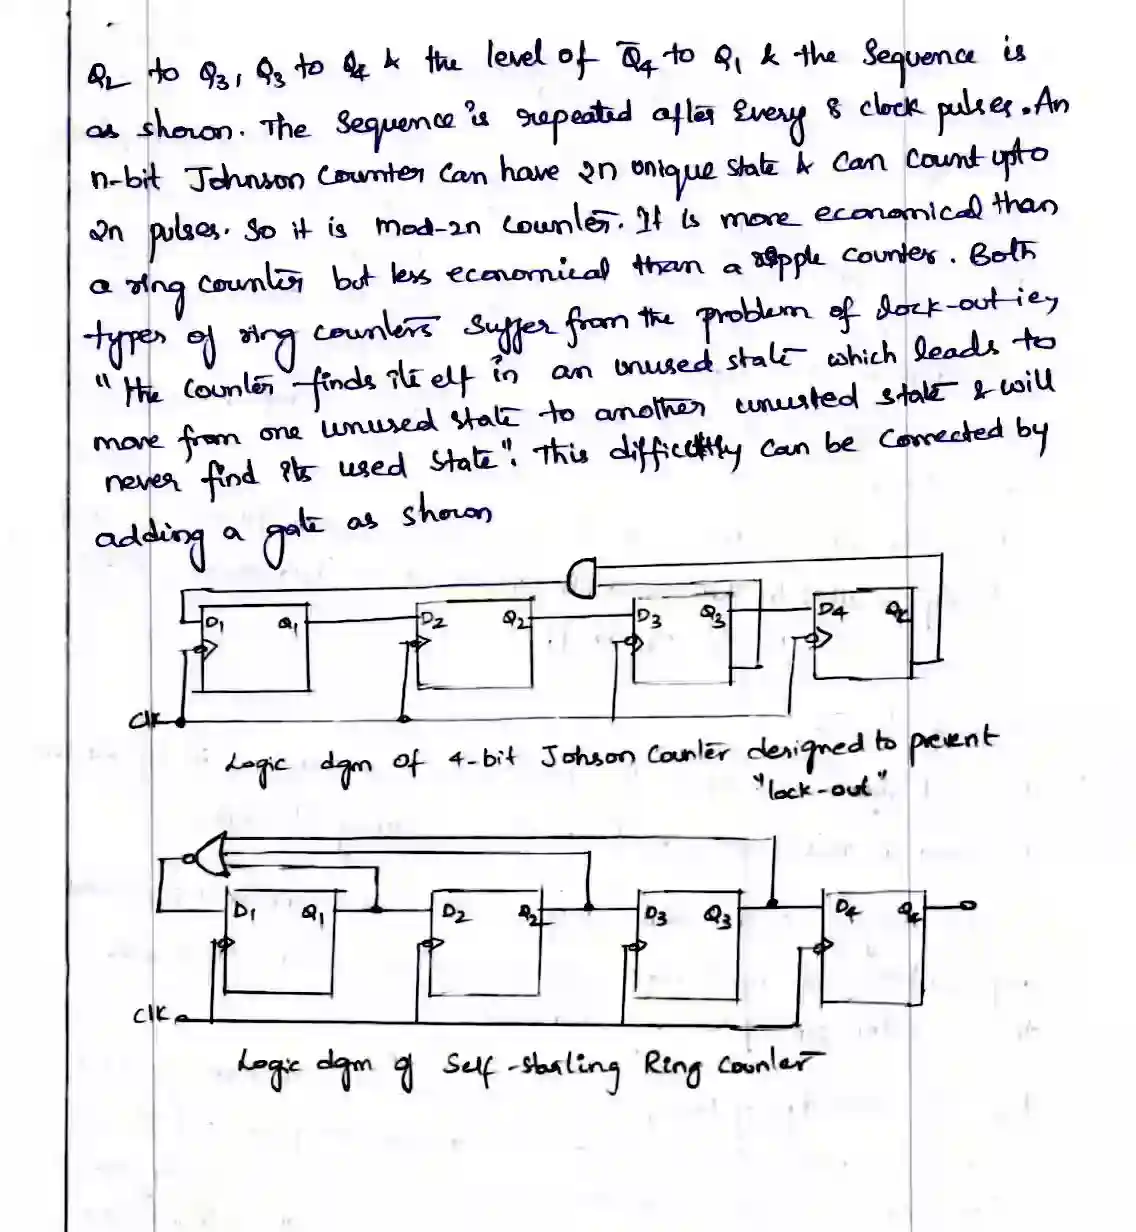 Q2 to Q3, Q3 to Q4 & the level of Q̅4 to Q1 & the Sequence is
as shown. The Sequence is repeated after Every 8 clock pulses. An
n-bit Johnson Counter Can have 2n unique state & Can Count upto
2n pulses. So it is mod-2n counter. It is more economical than
a ring counter but less economical than a ripple counter. Both
types of ring counters suffer from the problem of lock-out ie,
"the counter finds itself in an unused state which leads to
move from one unused state to another unusted state & will
never find its used state". This difficulty can be corrected by
adding a gate as shown
D1 Q1 D2 Q2 D3 Q3 D4 Q4
Clk
Logic dgm of 4-bit Johson Counter designed to prevent
"lock-out"
D1 Q1 D2 Q2 D3 Q3 D4 Q4
clk
Logic dgm of Self-starting Ring Counter